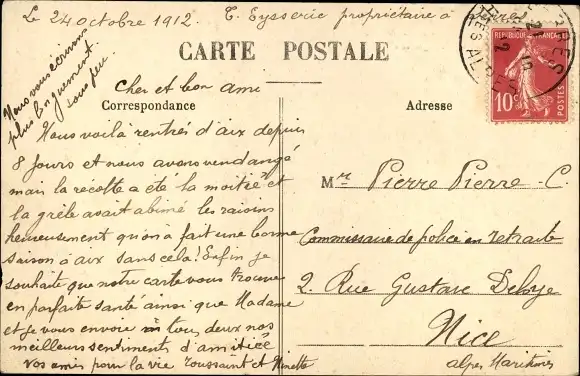 Le 24 octobre 1912. T. Eysseric propriétaire à
CARTE POSTALE
Nous vous écrirons
plus longuement
sous peu.
Cher et bon ami
Correspondance
Nous voilà rentrés d'aix depuis
8 jours et nous avons vendangé
mais la récolte a été la moitié et
la grêle avait abimé les raisins
heureusement qu'on a fait une bonne
saison à aix sans cela! Enfin je
souhaite que notre carte vous trouve
en parfaite santé ainsi que Madame
et je vous envoie à tous deux nos
meilleurs sentiments d'amitiée
vos amis pour la vie Toussaint et Ninette
Adresse
Mr. Pierre Pierre-C.
Commissaire de police en retraite
2. Rue Gustave Deloye
Nice
alpes Maritimes
REPUBLIQUE FRANÇAISE
10c
POSTES